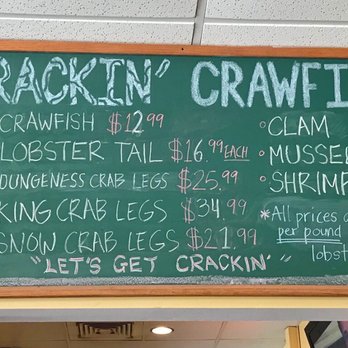 RACKIN' CRAWFI
CRAWFISH $12.99
LOBSTER TAIL $16.99 EACH
DUNGENESS CRAB LEGS $25.99
KING CRAB LEGS $34.99
SNOW CRAB LEGS $21.99
"LET'S GET CRACKIN'"
CLAM
MUSSE
SHRIMP
*All prices a
per pound
lobst